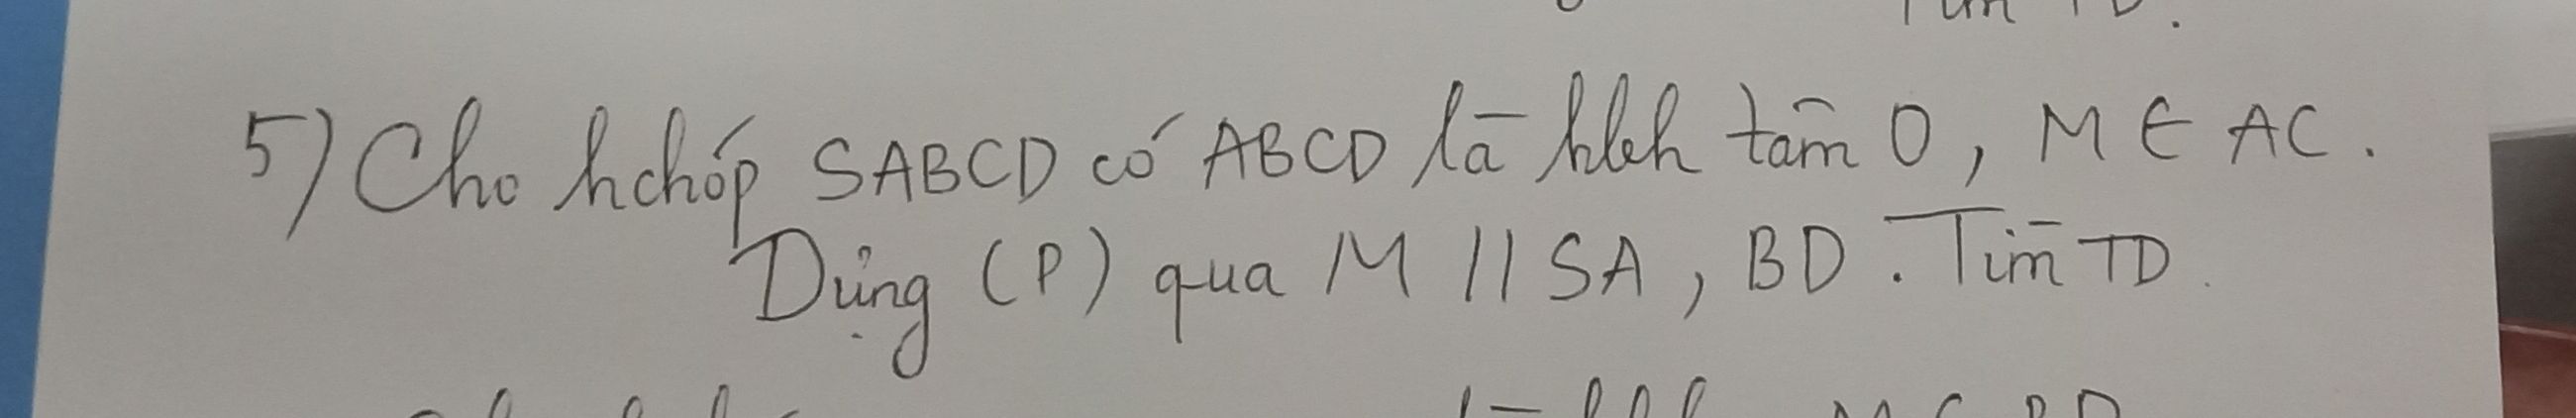 Tìm TD.
5) Cho hchóp SABCD có ABCD là hbh tâm O, M ∈ AC.
Dựng (P) qua M // SA, BD. Tìm TD.